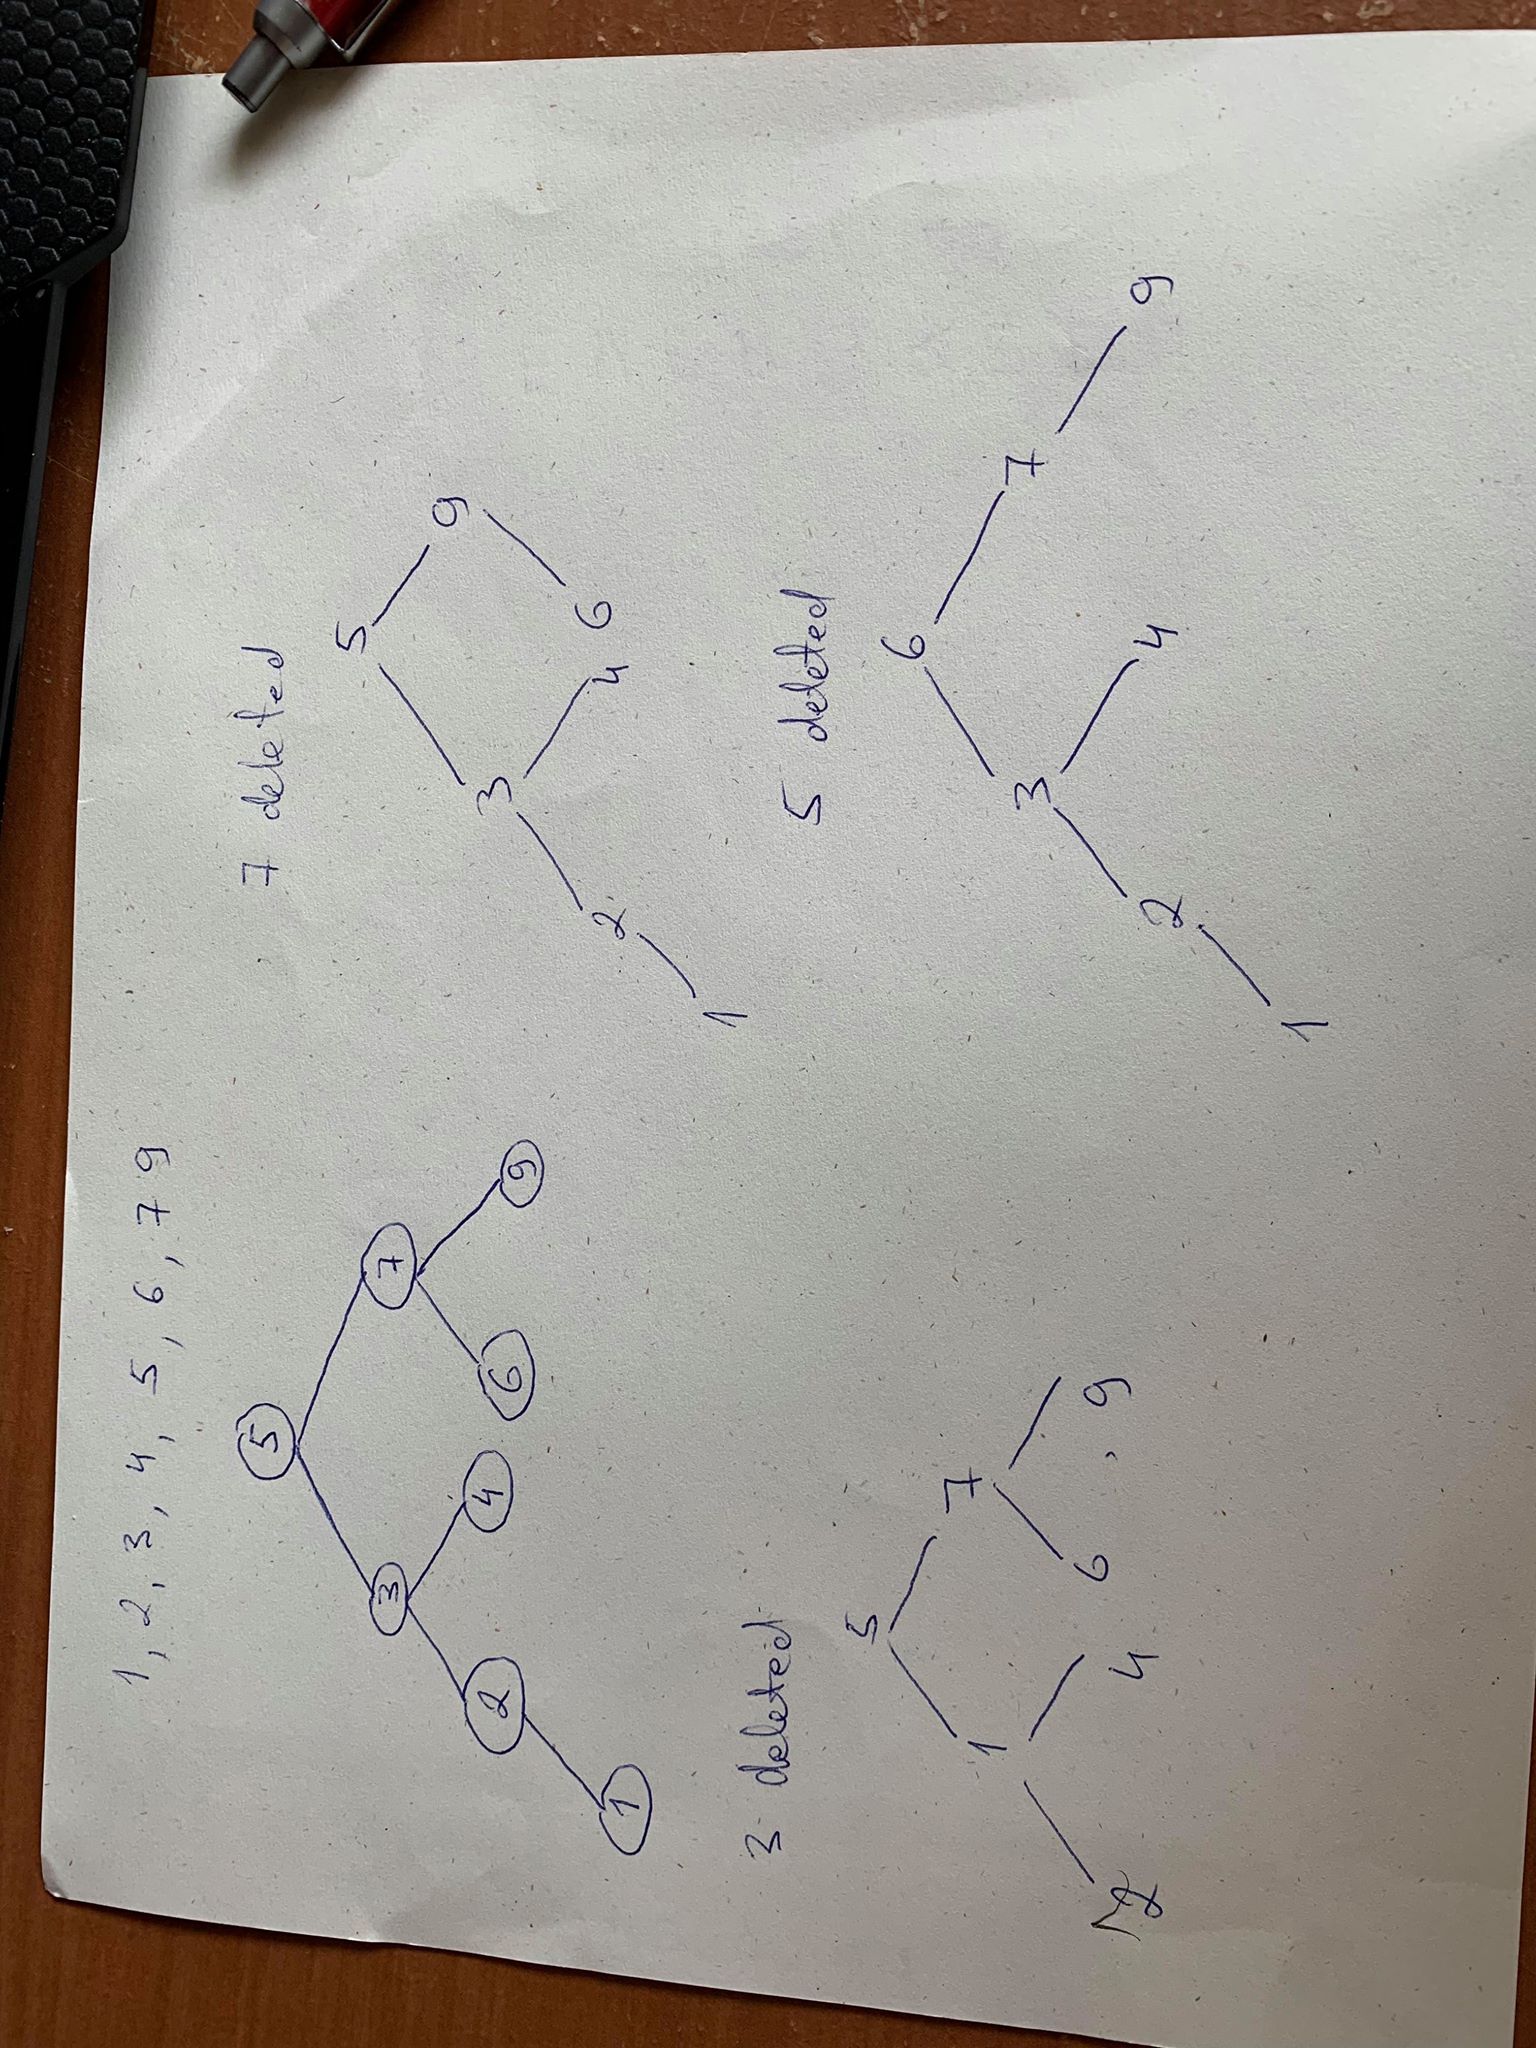 1, 2, 3, 4, 5, 6, 7 9
5
3 7
2 4 6 9
1
7 deleted
5
3 9
2 4 6
1
3 deleted
5
1 7
2 4 6, 9
5 deleted
6
3 7
2 4 9
1